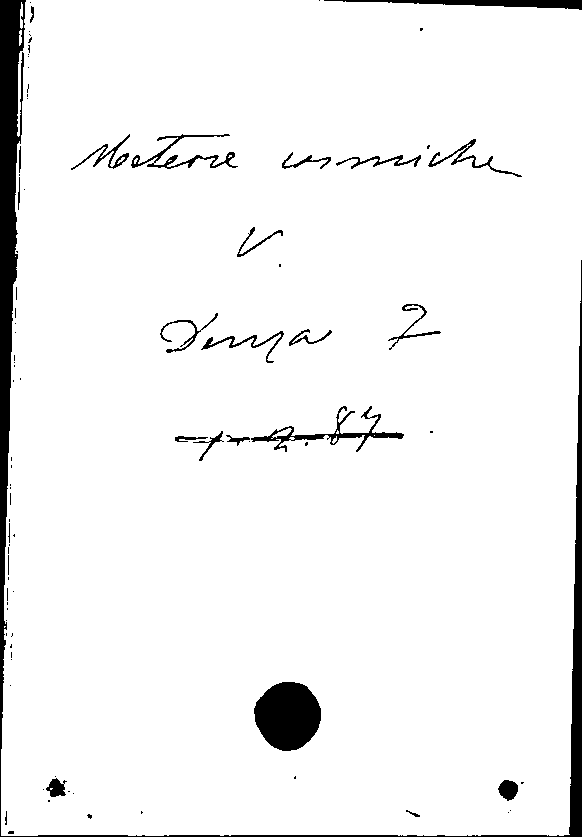 Meteore cosmiche
V.
Denza F
1. 2. 87